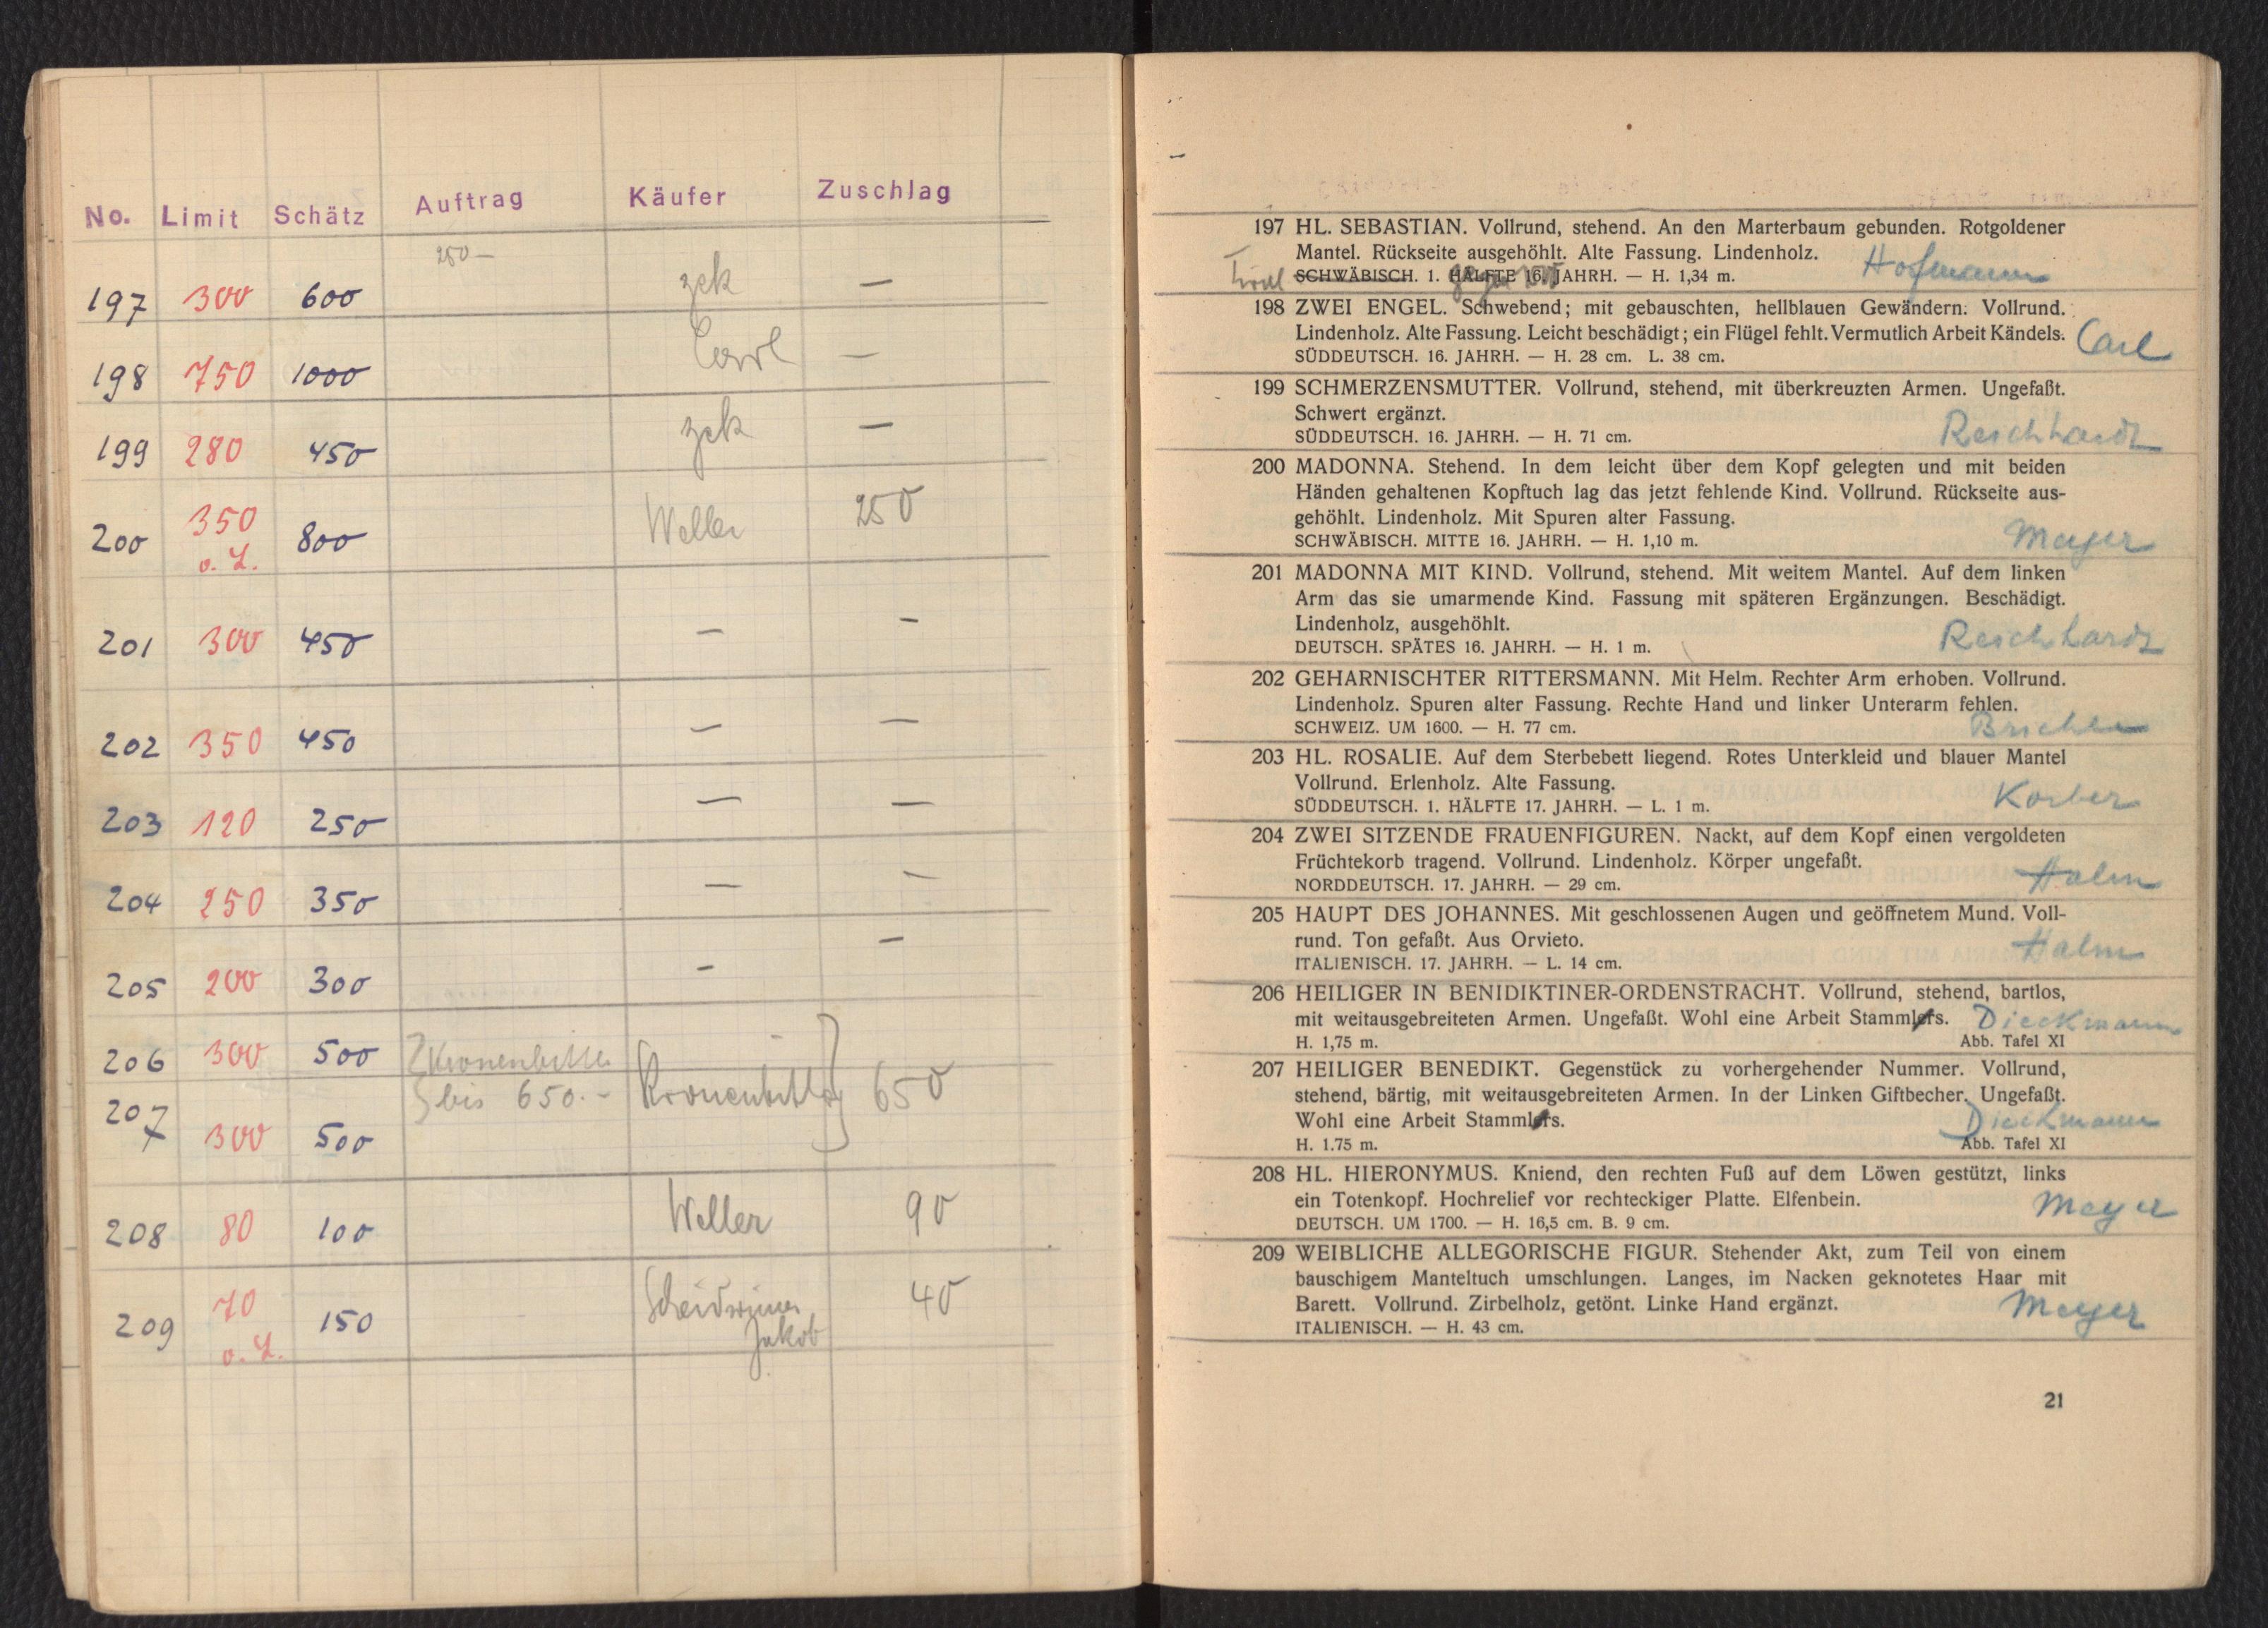 No. Limit Schätz Auftrag Käufer Zuschlag
250 —
197 300 600 zck —
198 750 1000 Carl —
199 280 450 zck —
200 350 800 Weller 250
o. L.
201 300 450 — —
202 350 450 — —
203 120 250 — —
204 250 350 — —
205 200 300 — —
206 300 500
bis 650.- 650
207 300 500
208 80 100 Weller 90
209 70 150 40
o. L. Jakob
197 HL. SEBASTIAN. Vollrund, stehend. An den Marterbaum gebunden. Rotgoldener
Mantel. Rückseite ausgehöhlt. Alte Fassung. Lindenholz. Hofmann
Tirol SCHWÄBISCH. 1. HÄLFTE 16. JAHRH. — H. 1,34 m.
198 ZWEI ENGEL. Schwebend; mit gebauschten, hellblauen Gewändern. Vollrund.
Lindenholz. Alte Fassung. Leicht beschädigt; ein Flügel fehlt. Vermutlich Arbeit Kändels. Carl
SÜDDEUTSCH. 16. JAHRH. — H. 28 cm. L. 38 cm.
199 SCHMERZENSMUTTER. Vollrund, stehend, mit überkreuzten Armen. Ungefaßt.
Schwert ergänzt.
SÜDDEUTSCH. 16. JAHRH. — H. 71 cm. Reichhardt
200 MADONNA. Stehend. In dem leicht über dem Kopf gelegten und mit beiden
Händen gehaltenen Kopftuch lag das jetzt fehlende Kind. Vollrund. Rückseite aus-
gehöhlt. Lindenholz. Mit Spuren alter Fassung.
SCHWÄBISCH. MITTE 16. JAHRH. — H. 1,10 m. Meyer
201 MADONNA MIT KIND. Vollrund, stehend. Mit weitem Mantel. Auf dem linken
Arm das sie umarmende Kind. Fassung mit späteren Ergänzungen. Beschädigt.
Lindenholz, ausgehöhlt.
DEUTSCH. SPÄTES 16. JAHRH. — H. 1 m. Reichhardt
202 GEHARNISCHTER RITTERSMANN. Mit Helm. Rechter Arm erhoben. Vollrund.
Lindenholz. Spuren alter Fassung. Rechte Hand und linker Unterarm fehlen.
SCHWEIZ. UM 1600. — H. 77 cm.
203 HL. ROSALIE. Auf dem Sterbebett liegend. Rotes Unterkleid und blauer Mantel
Vollrund. Erlenholz. Alte Fassung.
SÜDDEUTSCH. 1. HÄLFTE 17. JAHRH. — L. 1 m. Korber
204 ZWEI SITZENDE FRAUENFIGUREN. Nackt, auf dem Kopf einen vergoldeten
Früchtekorb tragend. Vollrund. Lindenholz. Körper ungefaßt.
NORDDEUTSCH. 17. JAHRH. — 29 cm. Halm
205 HAUPT DES JOHANNES. Mit geschlossenen Augen und geöffnetem Mund. Voll-
rund. Ton gefaßt. Aus Orvieto. Halm
ITALIENISCH. 17. JAHRH. — L. 14 cm.
206 HEILIGER IN BENIDIKTINER-ORDENSTRACHT. Vollrund, stehend, bartlos,
mit weitausgebreiteten Armen. Ungefaßt. Wohl eine Arbeit Stammlers. Dieckmann
H. 1,75 m. Abb. Tafel XI
207 HEILIGER BENEDIKT. Gegenstück zu vorhergehender Nummer. Vollrund,
stehend, bärtig, mit weitausgebreiteten Armen. In der Linken Giftbecher. Ungefaßt.
Wohl eine Arbeit Stammlers. Dieckmann
H. 1.75 m. Abb. Tafel XI
208 HL. HIERONYMUS. Kniend, den rechten Fuß auf dem Löwen gestützt, links
ein Totenkopf. Hochrelief vor rechteckiger Platte. Elfenbein. Meyer
DEUTSCH. UM 1700. — H. 16,5 cm. B. 9 cm.
209 WEIBLICHE ALLEGORISCHE FIGUR. Stehender Akt, zum Teil von einem
bauschigem Manteltuch umschlungen. Langes, im Nacken geknotetes Haar mit
Barett. Vollrund. Zirbelholz, getönt. Linke Hand ergänzt. Meyer
ITALIENISCH. — H. 43 cm.
21